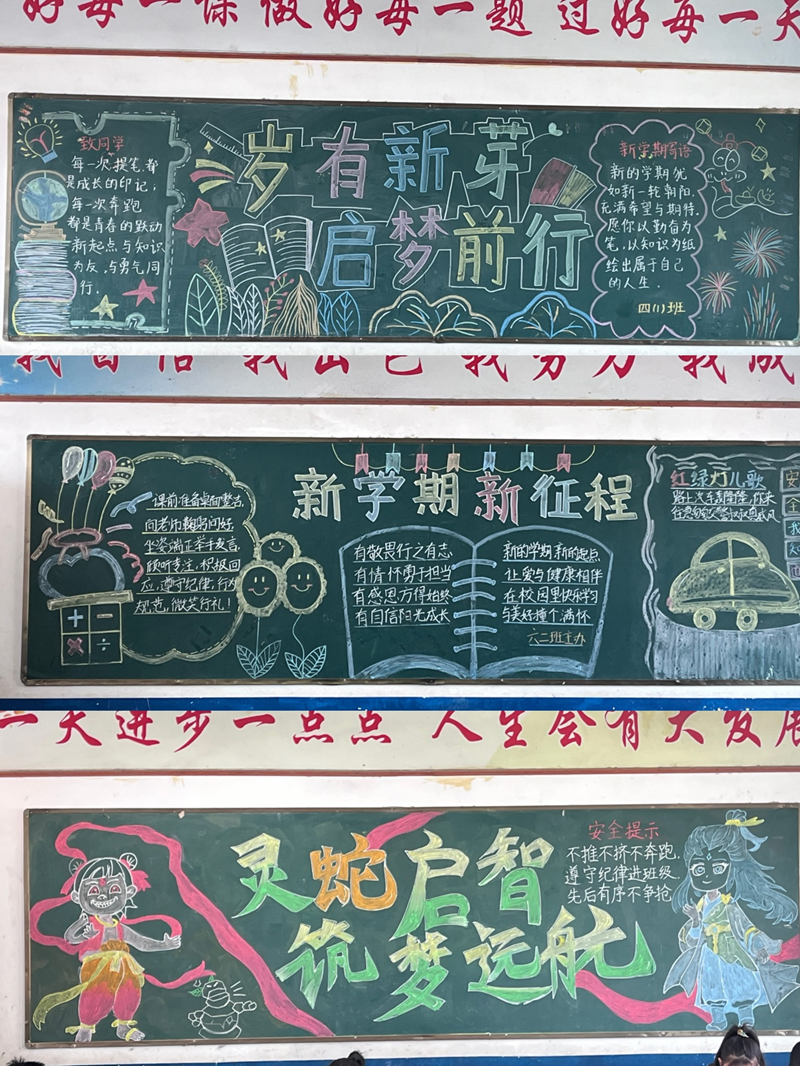 好每一课 做好每一题 过好每一天
致同学
每一次提笔,都
是成长的印记,
每一次奔跑
都是青春的跃动
新起点与知识
为友,与勇气同
行.
岁有新芽
启梦前行
新学期寄语
新的学期,犹
如新一轮朝阳.
充满希望与期待.
愿你以勤奋为
笔,以知识为纸
绘出属于自己
的人生.
四(1)班
我自信 我出色 我努力 我成
课前准备桌面整洁,
向老师鞠躬问好
坐姿端正举手发言,
倾听专注,积极回
应,遵守纪律,行为
规范,微笑行礼!
+ -
× ÷
新学期新征程
有敬畏行之有志
有情怀勇于担当
有感恩方得始终
有自信阳光成长
新的学期新的起点
让爱与健康相伴
在校园里快乐学习
与美好撞个满怀
六二班主办
红绿灯儿歌
路上汽车轰隆隆,你来
安
全
我
知
一天进步一点点 人生会有大发展
灵蛇启智
筑梦远航
安全提示
不推不挤不奔跑,
遵守纪律进班级,
先后有序不争抢